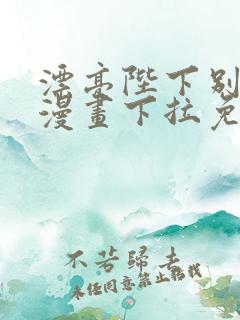 漂亮陛下别
漫畫下拉免
不若歸去
未经同意禁止转载